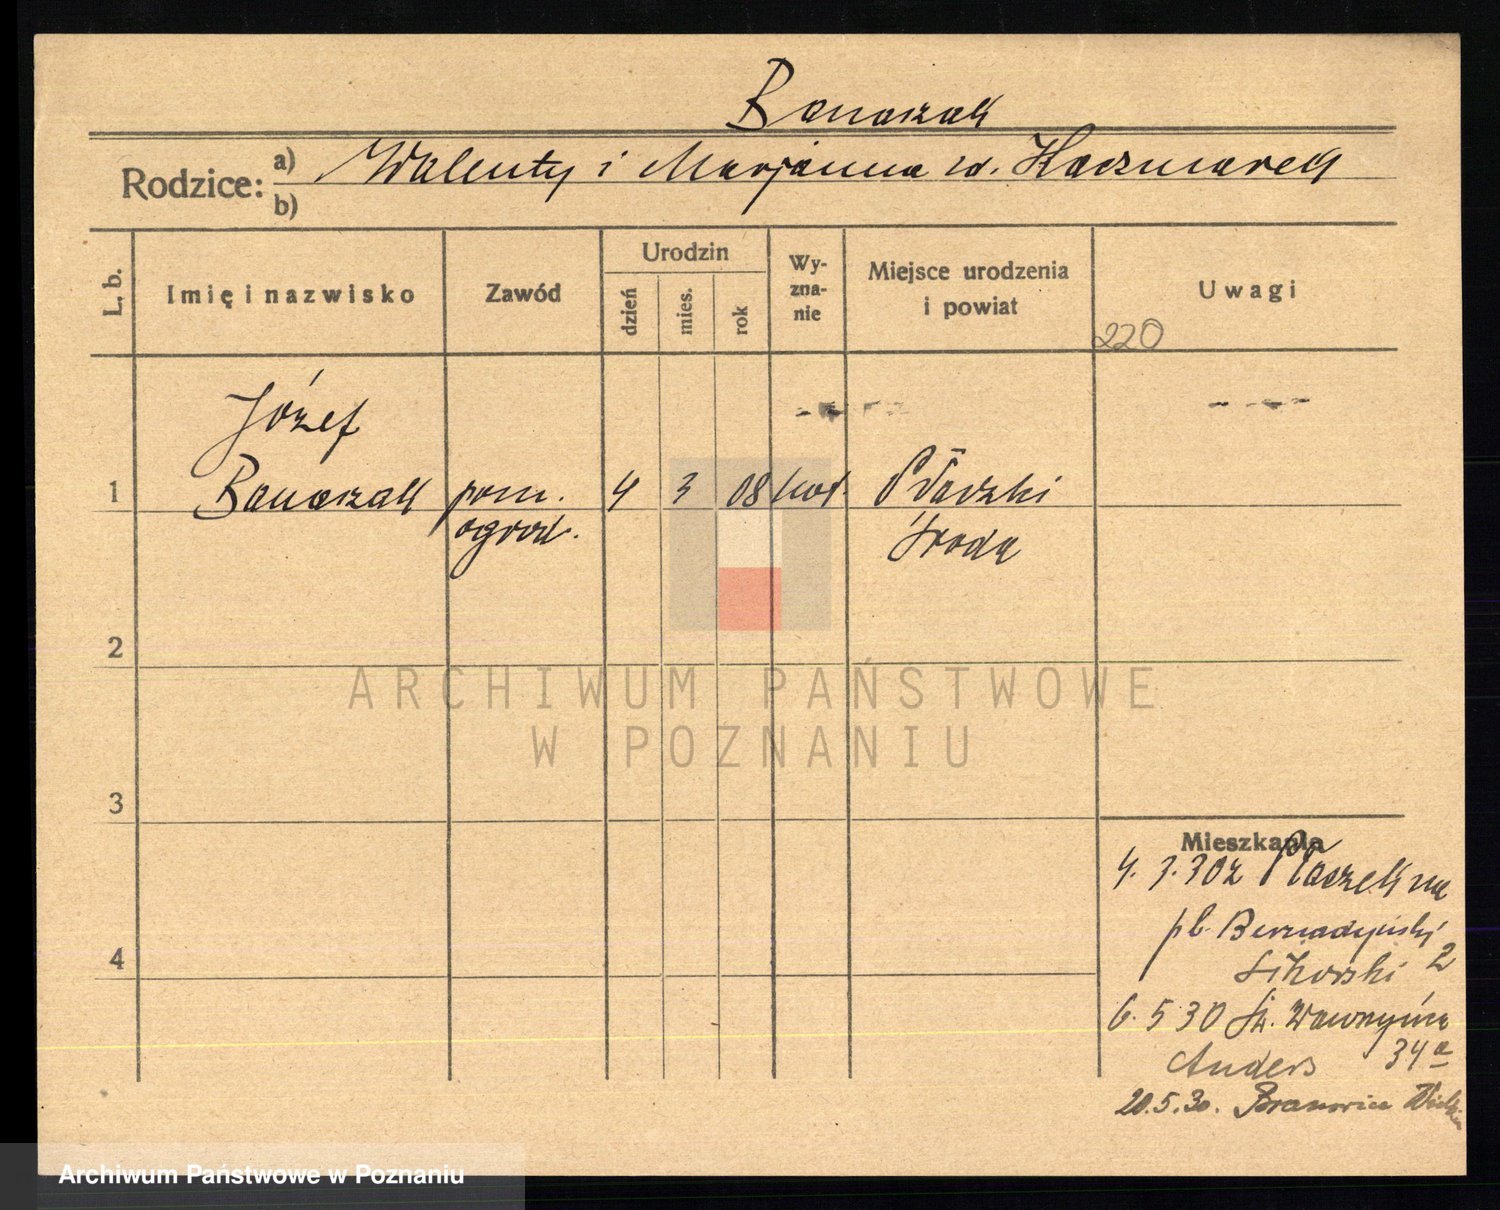 Banaszak
Rodzice: a) Walenty i Marjanna ur. Kaczmarek
b)
L. b.
Imię i nazwisko
Zawód
Urodzin
dzień
mies.
rok
Wy-
zna-
nie
Miejsce urodzenia
i powiat
Uwagi
220
Józef
1 Banaszak pom. 4 3 08 kat. Płaczki
ogrod. Środa
2
ARCHIWUM PAŃSTWOWE
W POZNANIU
3
Mieszkania
4. 3. 30 z Płaczek na
pl. Bernadyński
4
Sikorski 2
6. 5 30 Św. Wawrzyńca
Anders 34a
20.5.30.
Archiwum Państwowe w Poznaniu